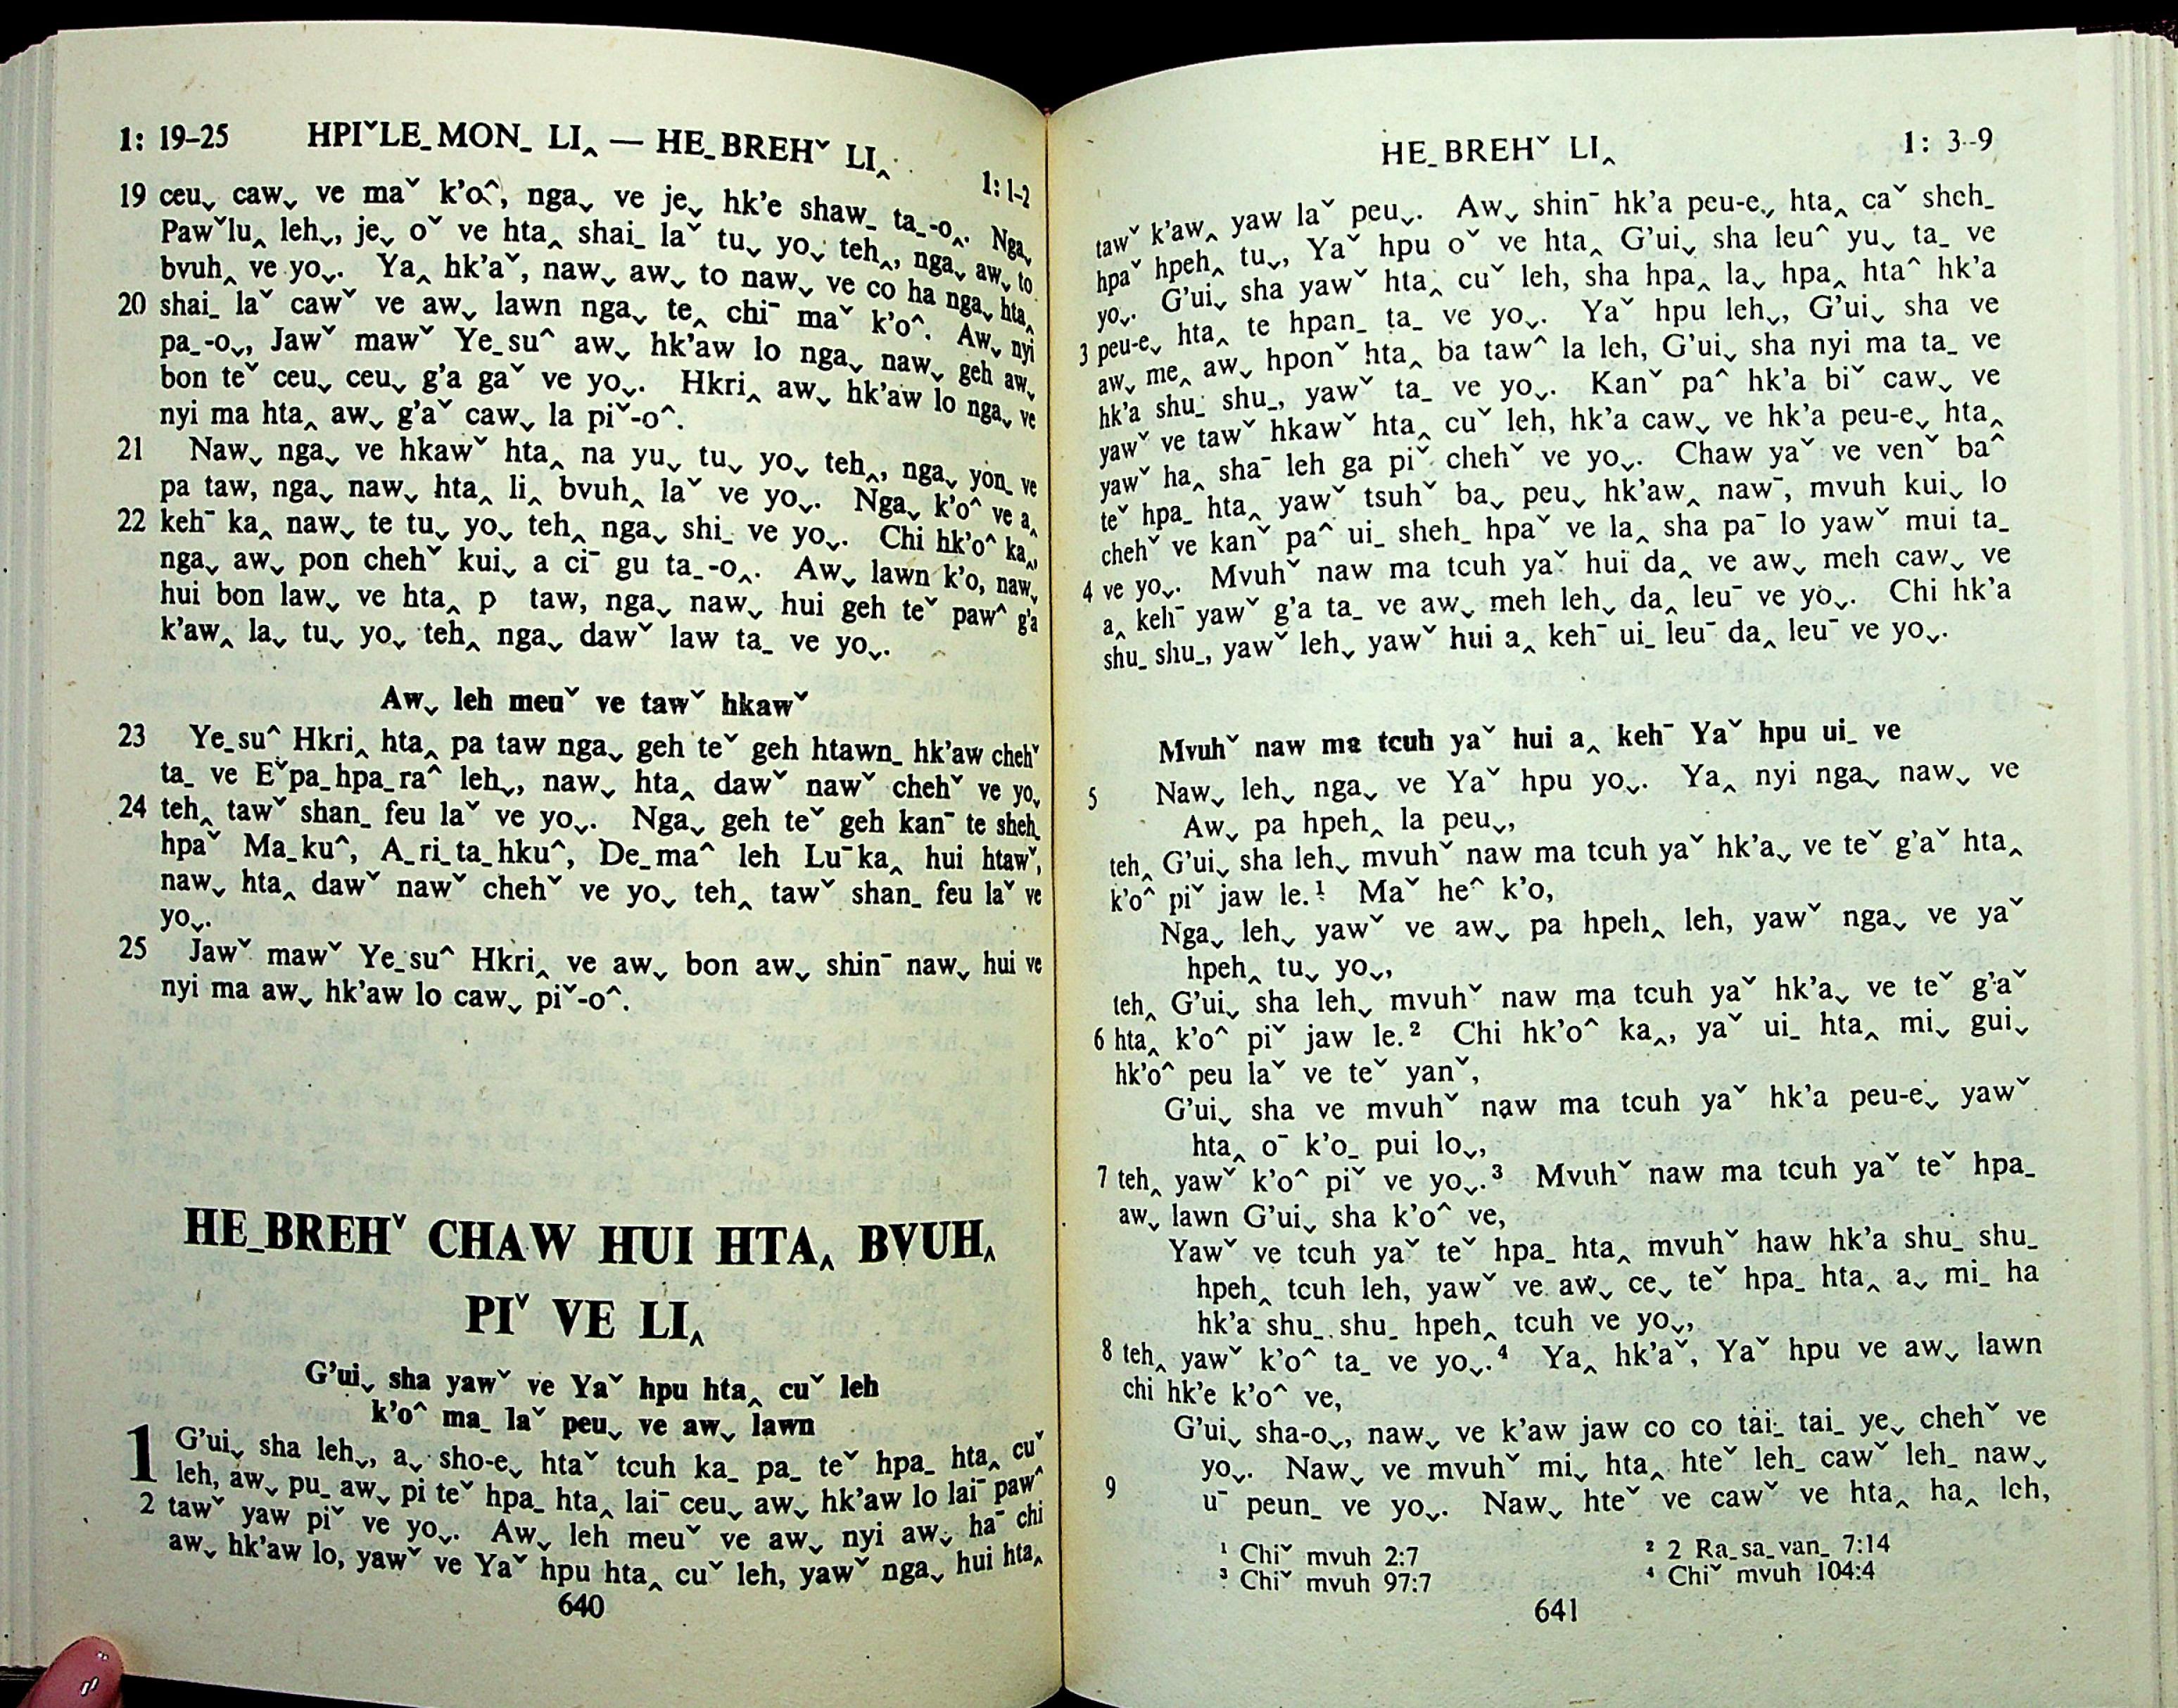 1: 19-25 HPIˇLE_MON_ LI‸ — HE_BREHˇ LI‸
1: 1-2
19 ceuˬ cawˬ ve maˇ k'o^, ngaˬ ve jeˬ hk'e shaw_ ta_-o‸. Ngaˬ
Pawˇlu‸ lehˬ, jeˬ oˇ ve hta‸ shai_ laˇ tuˬ yoˬ teh‸, ngaˬ awˬ to
bvuh‸ ve yoˬ. Ya‸ hk'aˇ, nawˬ awˬ to nawˬ ve co ha ngaˬ hta‸
20 shai_ laˇ cawˇ ve awˬ lawn ngaˬ te‸ chi¯ maˇ k'o^. Awˬ nyi
pa_-oˬ, Jawˇ mawˇ Ye_su^ awˬ hk'aw lo ngaˬ nawˬ geh awˬ
bon teˇ ceuˬ ceuˬ g'a gaˇ ve yoˬ. Hkri‸ awˬ hk'aw lo ngaˬ ve
nyi ma hta‸ awˬ g'aˇ cawˬ la piˇ-o^.
21 Nawˬ ngaˬ ve hkawˇ hta‸ na yuˬ tuˬ yoˬ teh‸, ngaˬ yon_ ve
pa taw, ngaˬ nawˬ hta‸ li‸ bvuh‸ laˇ ve yoˬ. Ngaˬ k'o^ ve a‸
22 keh¯ ka‸ nawˬ te tuˬ yoˬ teh‸ ngaˬ shi_ ve yoˬ. Chi hk'o^ ka‸,
ngaˬ awˬ pon chehˇ kuiˬ a ci¯ gu ta_-o‸. Awˬ lawn k'o, nawˬ
hui bon lawˬ ve hta‸ p taw, ngaˬ nawˬ hui geh teˇ paw^ g'a
k'aw‸ laˬ tuˬ yoˬ teh‸ ngaˬ dawˇ law ta_ ve yoˬ.
Awˬ leh meuˇ ve tawˇ hkawˇ
23 Ye_su^ Hkri‸ hta‸ pa taw ngaˬ geh teˇ geh htawn_ hk'aw chehˇ
ta_ ve Eˇpa_hpa_ra^ lehˬ, nawˬ hta‸ dawˇ nawˇ chehˇ ve yoˬ
24 teh‸ tawˇ shan_ feu laˇ ve yoˬ. Ngaˬ geh teˇ geh kan¯ te sheh_
hpaˇ Ma_ku^, A_ri_ta_hku^, De_ma^ leh Lu¯ka‸ hui htawˇ,
nawˬ hta‸ dawˇ nawˇ chehˇ ve yoˬ teh‸ tawˇ shan_ feu laˇ ve
yoˬ.
25 Jawˇ mawˇ Ye_su^ Hkri‸ ve awˬ bon awˬ shin¯ nawˬ hui ve
nyi ma awˬ hk'aw lo cawˬ piˇ-o^.
HE_BREHˇ CHAW HUI HTA‸ BVUH‸
PIˇ VE LI‸
G'uiˬ sha yawˇ ve Yaˇ hpu hta‸ cuˇ leh
k'o^ ma_ laˇ peuˬ ve awˬ lawn
1 G'uiˬ sha lehˬ, aˬ sho-eˬ htaˇ tcuh ka_ pa_ teˇ hpa_ hta‸ cuˇ
leh, awˬ pu_ awˬ pi teˇ hpa_ hta‸ lai¯ ceuˬ awˬ hk'aw lo lai¯ paw^
2 tawˇ yaw piˇ ve yoˬ. Awˬ leh meuˇ ve awˬ nyi awˬ ha¯ chi
awˬ hk'aw lo, yawˇ ve Yaˇ hpu hta‸ cuˇ leh, yawˇ ngaˬ hui hta‸
640
HE_BREHˇ LI‸ 1: 3-9
tawˇ k'aw‸ yaw laˇ peuˬ. Awˬ shin¯ hk'a peu-eˬ hta‸ caˇ sheh_
hpaˇ hpeh‸ tuˬ, Yaˇ hpu oˇ ve hta‸ G'uiˬ sha leu^ yuˬ ta_ ve
yoˬ. G'uiˬ sha yawˇ hta‸ cuˇ leh, sha hpa‸ laˬ hpa‸ hta^ hk'a
3 peu-eˬ hta‸ te hpan_ ta_ ve yoˬ. Yaˇ hpu lehˬ, G'uiˬ sha ve
awˬ me‸ awˬ hponˇ hta‸ ba taw^ la leh, G'uiˬ sha nyi ma ta_ ve
hk'a shu_ shu_, yawˇ ta_ ve yoˬ. Kanˇ pa^ hk'a biˇ cawˬ ve
yawˇ ve tawˇ hkawˇ hta‸ cuˇ leh, hk'a cawˬ ve hk'a peu-eˬ hta‸
yawˇ ha‸ sha¯ leh ga piˇ chehˇ ve yoˬ. Chaw yaˇ ve venˇ ba^
teˇ hpa_ hta‸ yawˇ tsuhˇ baˬ peuˬ hk'aw‸ naw¯, mvuh kuiˬ lo
chehˇ ve kanˇ pa^ ui_ sheh_ hpaˇ ve la‸ sha pa¯ lo yawˇ mui ta_
4 ve yoˬ. Mvuhˇ naw ma tcuh yaˇ hui da‸ ve awˬ meh cawˬ ve
a‸ keh¯ yawˇ g'a ta_ ve awˬ meh lehˬ da‸ leu¯ ve yoˬ. Chi hk'a
shu_ shu_, yawˇ lehˬ yawˇ hui a‸ keh¯ ui_ leu¯ da‸ leu¯ ve yoˬ.
Mvuhˇ naw ma tcuh yaˇ hui a‸ keh¯ Yaˇ hpu ui_ ve
5 Nawˬ lehˬ ngaˬ ve Yaˇ hpu yoˬ. Ya‸ nyi ngaˬ nawˬ ve
Awˬ pa hpeh‸ la peuˬ,
teh‸ G'uiˬ sha lehˬ mvuhˇ naw ma tcuh yaˇ hk'aˬ ve teˇ g'aˇ hta‸
k'o^ piˇ jaw le.¹ Maˇ he^ k'o,
Ngaˬ lehˬ yawˇ ve awˬ pa hpeh‸ leh, yawˇ ngaˬ ve yaˇ
hpeh‸ tuˬ yoˬ,
teh‸ G'uiˬ sha lehˬ mvuhˇ naw ma tcuh yaˇ hk'aˬ ve teˇ g'aˇ
6 hta‸ k'o^ piˇ jaw le.² Chi hk'o^ ka‸, yaˇ ui_ hta‸ miˬ guiˬ
hk'o^ peu laˇ ve teˇ yanˇ,
G'uiˬ sha ve mvuhˇ naw ma tcuh yaˇ hk'a peu-eˬ yawˇ
hta‸ o¯ k'o_ pui loˬ,
7 teh‸ yawˇ k'o^ piˇ ve yoˬ.³ Mvuhˇ naw ma tcuh yaˇ teˇ hpa_
awˬ lawn G'uiˬ sha k'o^ ve,
Yawˇ ve tcuh yaˇ teˇ hpa_ hta‸ mvuhˇ haw hk'a shu_ shu_
hpeh‸ tcuh leh, yawˇ ve awˬ ceˬ teˇ hpa_ hta‸ aˬ mi_ ha
hk'a shu_ shu_ hpeh‸ tcuh ve yoˬ,
8 teh‸ yawˇ k'o^ ta_ ve yoˬ.⁴ Ya‸ hk'aˇ, Yaˇ hpu ve awˬ lawn
chi hk'e k'o^ ve,
G'uiˬ sha-oˬ, nawˬ ve k'aw jaw co co tai_ tai_ yeˬ chehˇ ve
yoˬ. Nawˬ ve mvuhˇ miˬ hta‸ hteˇ leh_ cawˇ leh_ nawˬ
9 u¯ peun_ ve yoˬ. Nawˬ hteˇ ve cawˇ ve hta‸ ha‸ leh,
¹ Chiˇ mvuh 2:7 ² 2 Ra_sa_van_ 7:14
³ Chiˇ mvuh 97:7 ⁴ Chiˇ mvuh 104:4
641